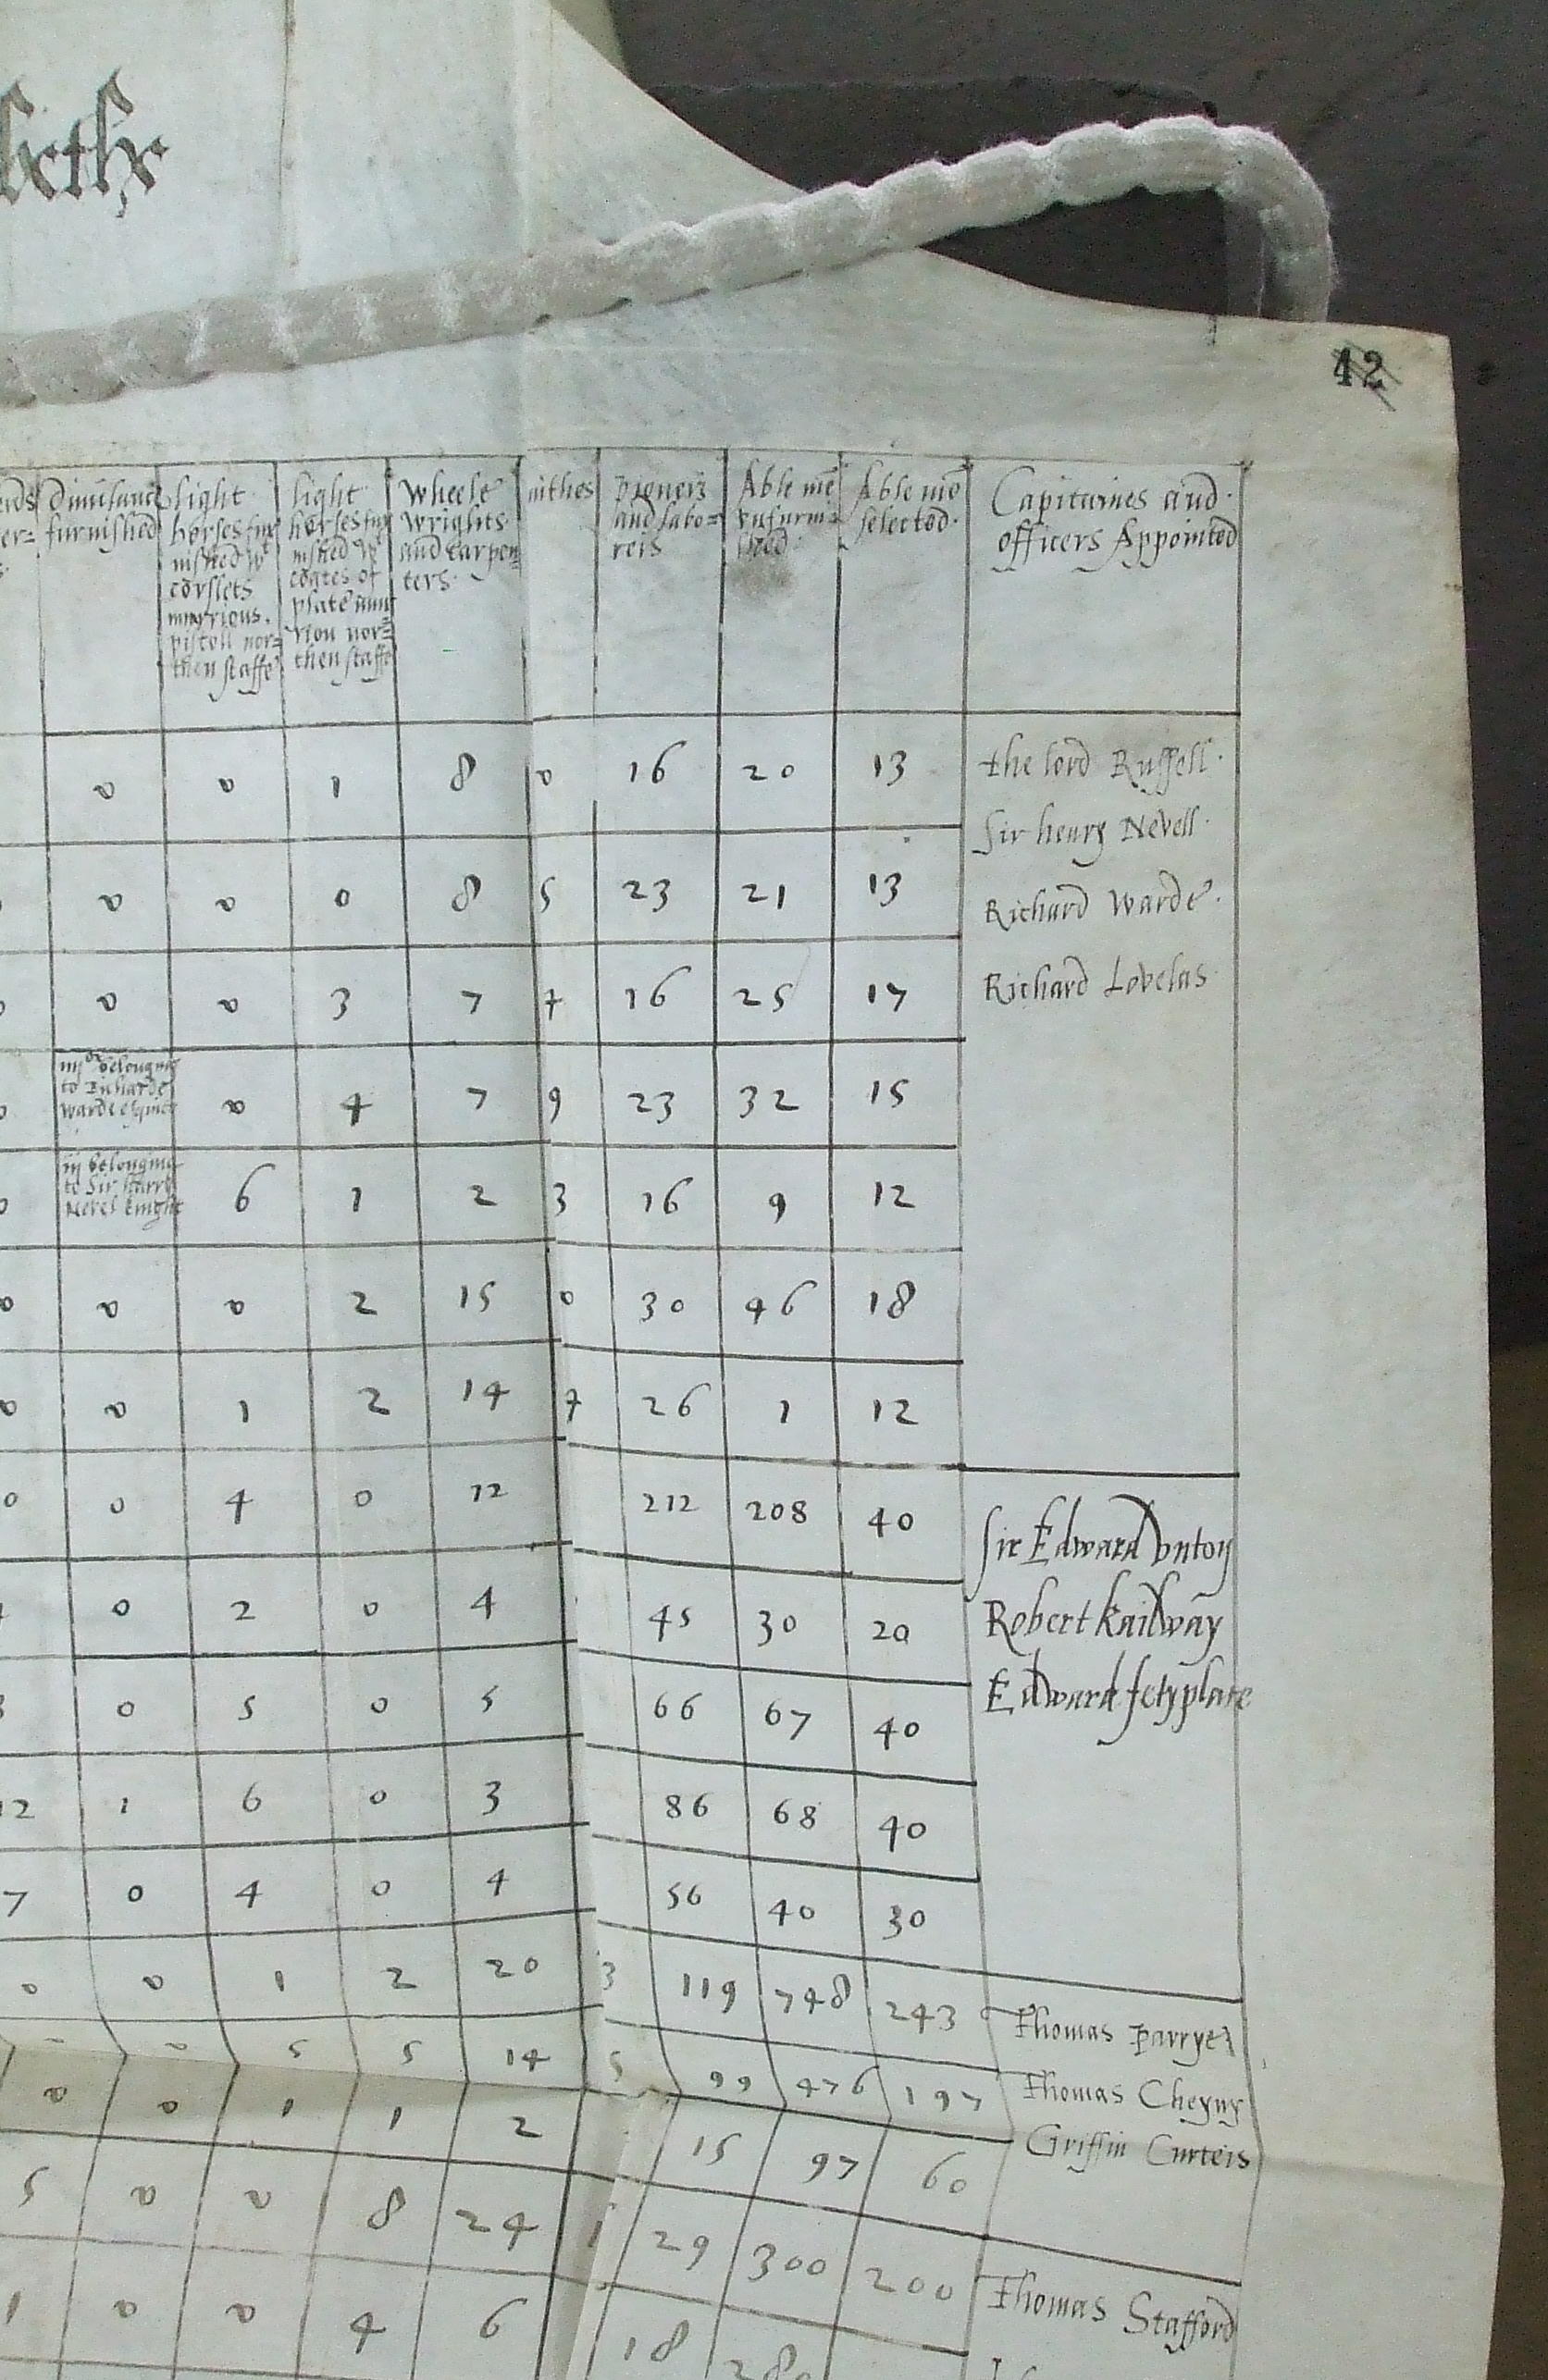 42
Capitaines and
officers Appointed
light
horses fur
nished wt
corslets
murrious.
pistoll nor=
then staffe
light
horses fur
nished wt
coates of
plate mur
rion nor=
then staffe
wheele
wrights
and carpen
ters.
mithes
pioners
and labo=
reis
Able me
vnfurni=
shed
Able me
selected.
dimilance
furnished
er=
0 0 1 8 0 16 20 13
the lord Russell.
Sir henry Nevell.
0 0 0 8 5 23 21 13
Richard warde.
0 0 3 7 7 16 25 17
Richard Lovelas
belonging
to Richarde
warde esquier
0 4 7 9 23 32 15
iij belonging
to Sir harry
Nevel knight
6 1 2 3 16 9 12
0 0 0 2 15 0 30 46 18
0 0 1 2 14 7 26 1 12
0 0 4 0 12 212 208 40
Sir Edward vnton
0 2 0 4 45 30 20
Robert kailway
0 5 0 5 66 67 40
Edward fetyplace
12 1 6 0 3 86 68 40
7 0 4 0 4 56 40 30
0 0 1 2 20 3 119 748 243
Thomas Parrye
5 5 14 5 99 476 197
Thomas Cheyny
0 0 1 1 2 15 97 60
Griffin Curteis
5 0 0 8 24 1 29 300 200
Thomas Stafford
1 0 0 4 6 18 280